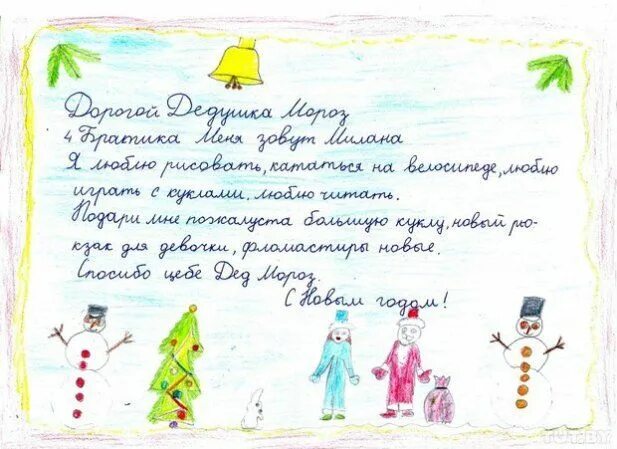 Дорогой Дедушка Мороз
4 Братика Меня зовут Милана
Я люблю рисовать, кататься на велосипеде, люблю
играть с куклами, люблю читать.
Подари мне пожалуста большую куклу, новый рю-
кзак для девочки, фломастиры новые.
Спосибо цебе Дед Мороз.
С Новым годом!
TUT.BY